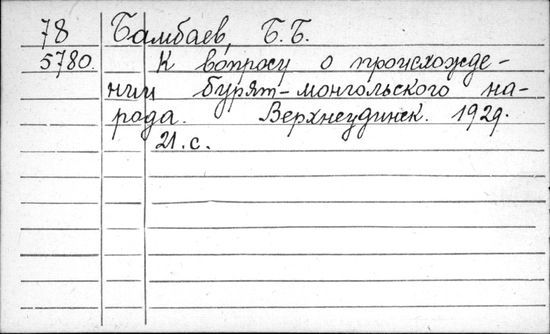 78 Бамбаев, Б.Б.
5780. К вопросу о происхожде-
нии бурят-монгольского на-
рода. Верхнеудинск. 1929.
21.с.